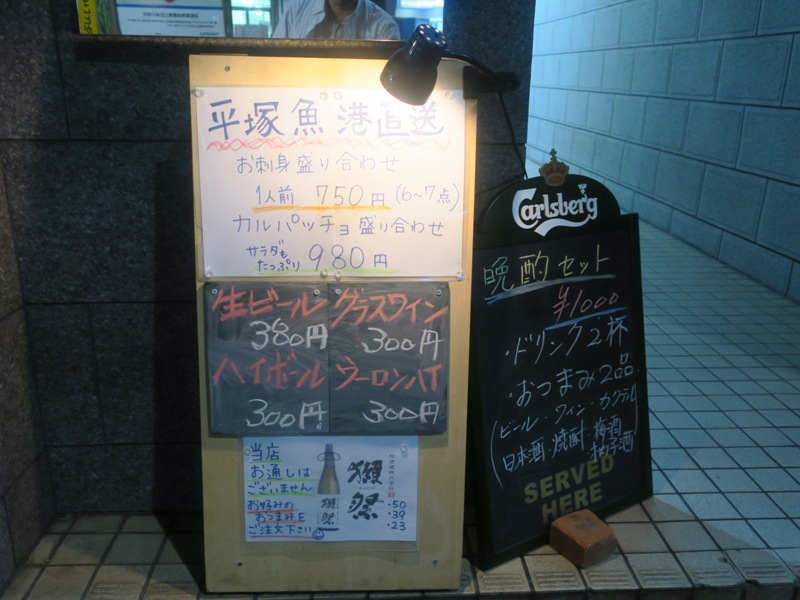 平塚魚港直送
お刺身盛り合わせ
1人前 750円 (6〜7点)
カルパッチョ盛り合わせ
サラダも
たっぷり 980円
生ビール
380円
グラスワイン
300円
ハイボール
300円
ウーロンハイ
300円
当店
お通しは
ございません
お好みの
おつまみを
ご注文下さい
獺祭
獺祭
旭酒造株式会社
・50
・39
・23
Carlsberg
晩酌セット
¥1000
・ドリンク2杯
・おつまみ2品
(ビール・ワイン・カクテル
日本酒・焼酎・梅酒
柚子酒)
SERVED
HERE